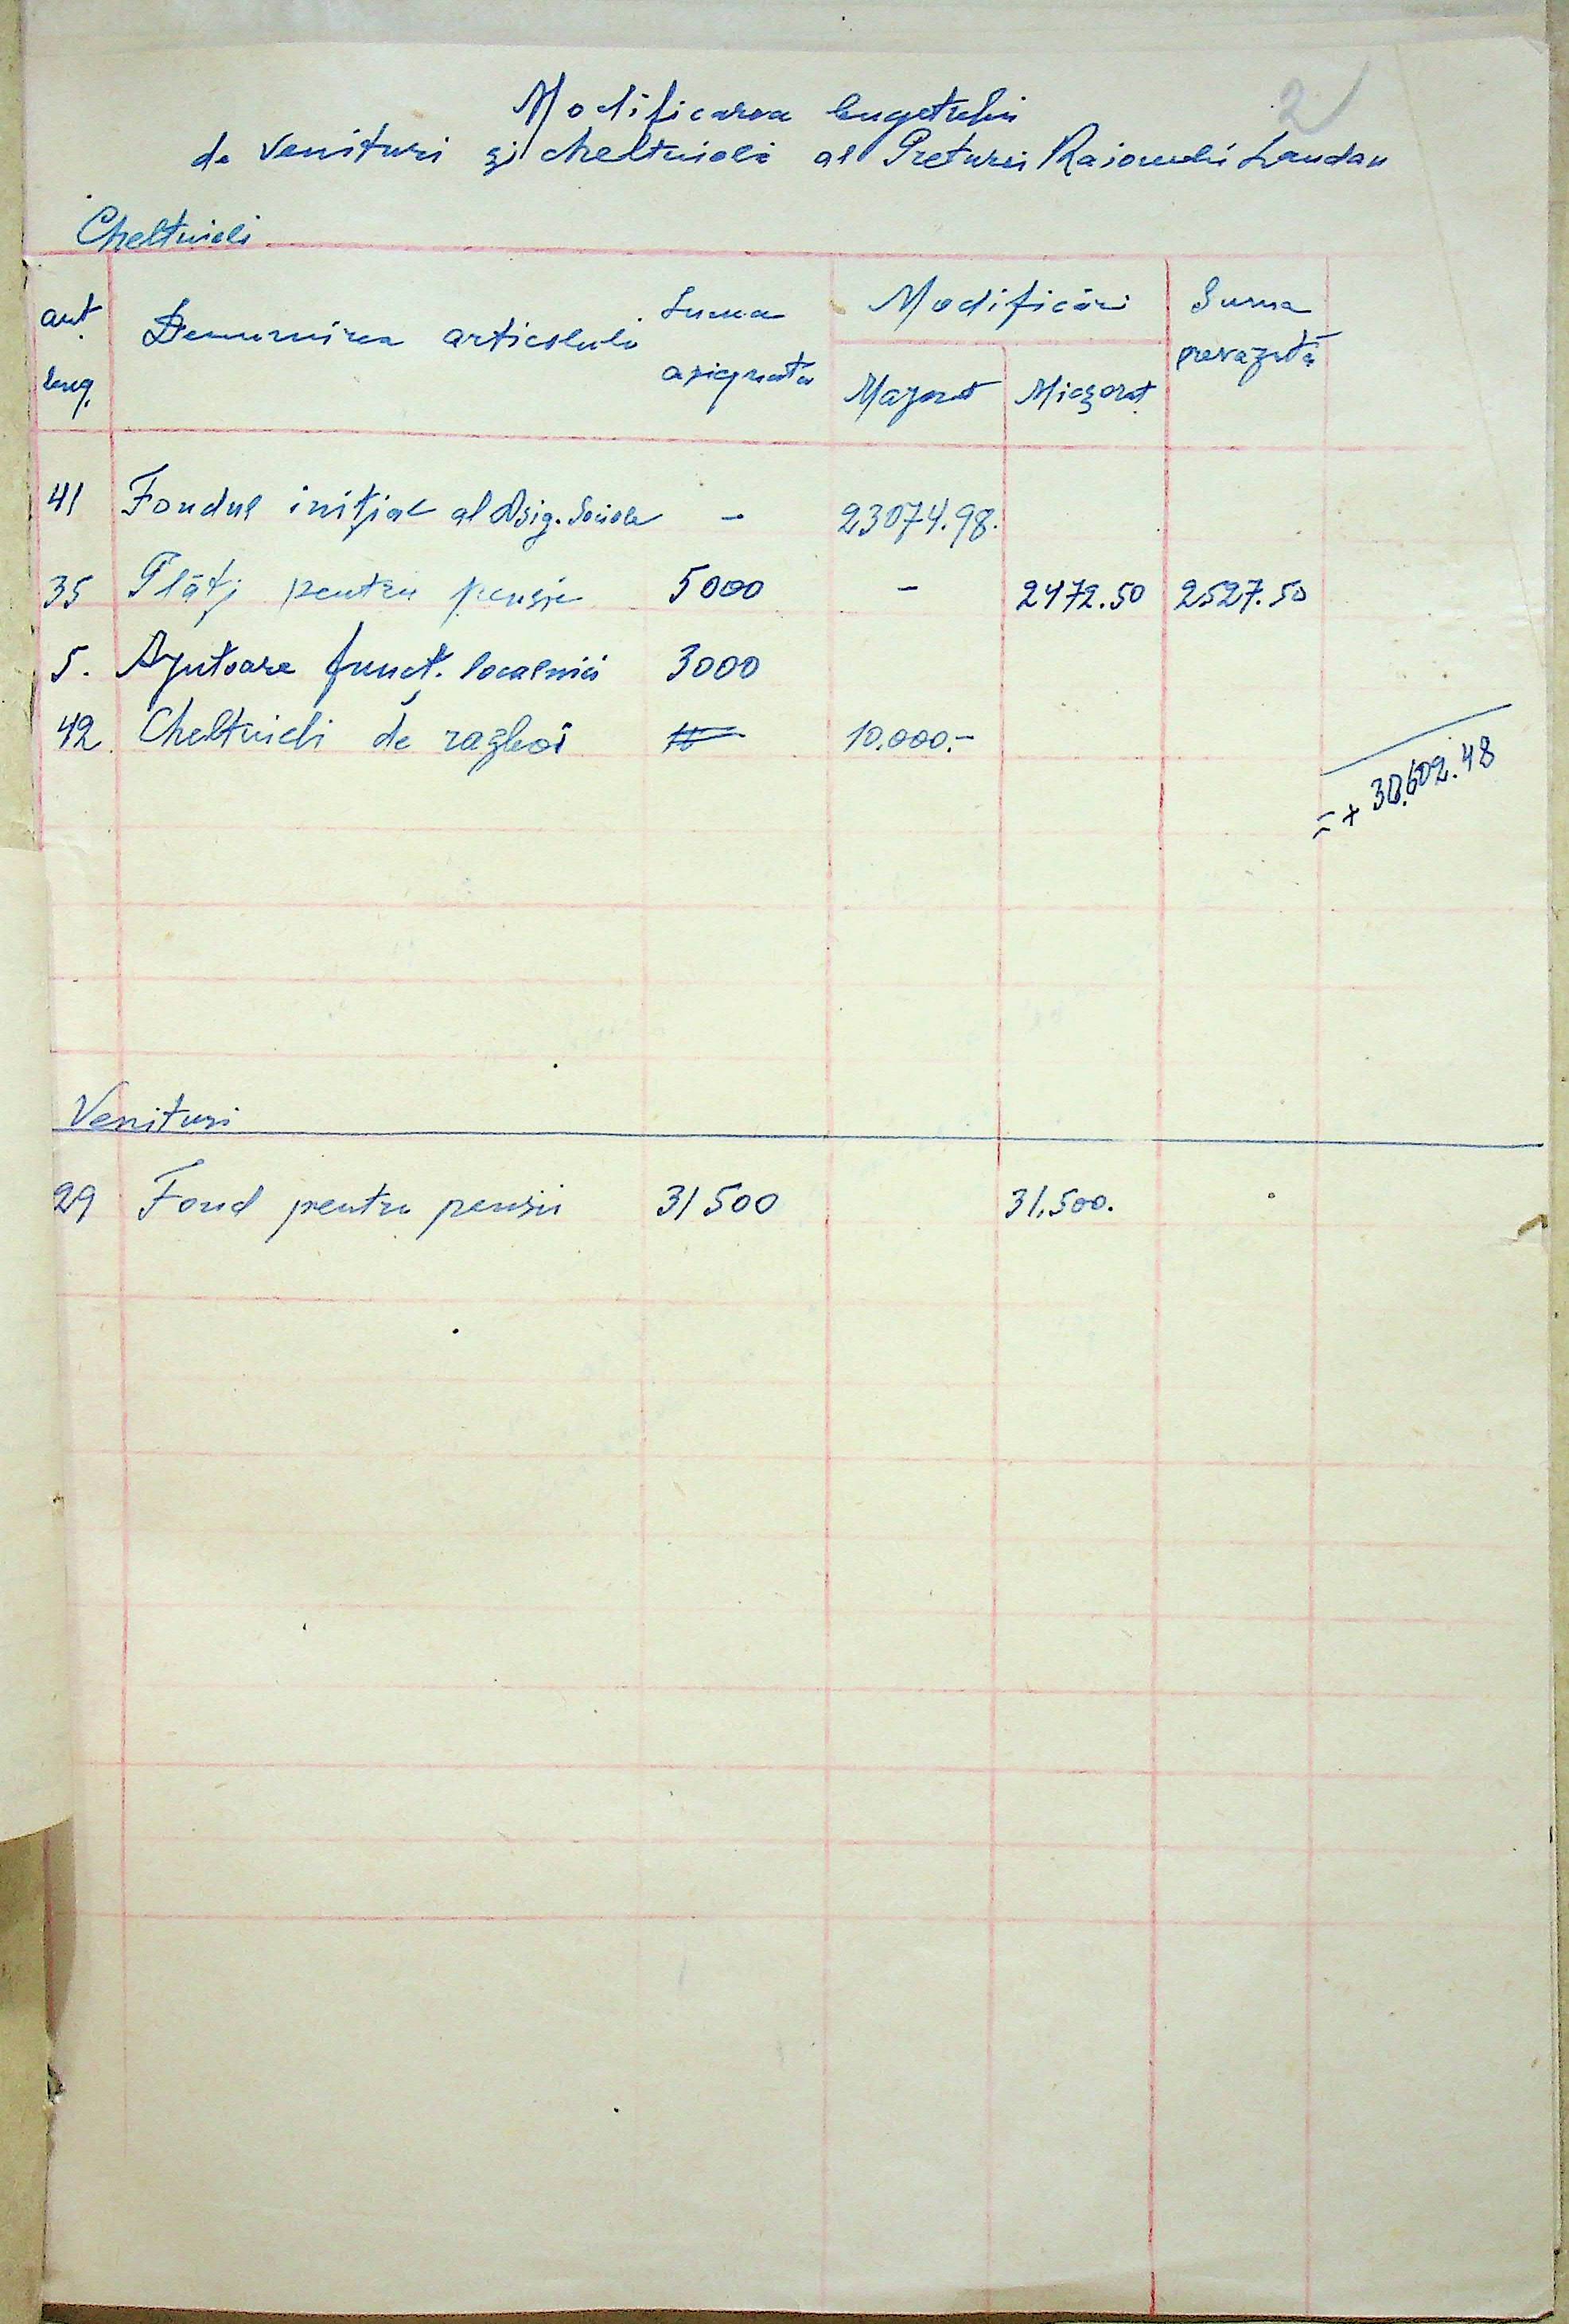 2
Modificarea bugetului
de venituri și cheltuieli al Preturii Raionului Landau
Cheltuieli
art. bug.
Denumirea articolului
Suma asignata
Modificări
Majorat
Micșorat
Suma prevăzută
41 Fondul inițial al Asig. Sociale - 23074.98.
35 Plăți pentru pensie 5000 - 2472.50 2527.50
5. Ajutoare funcț. localnici 3000
42 Cheltuieli de razboi 10.000.-
= + 30.602.48
Venituri
29 Fond pentru pensii 31500 31.500.